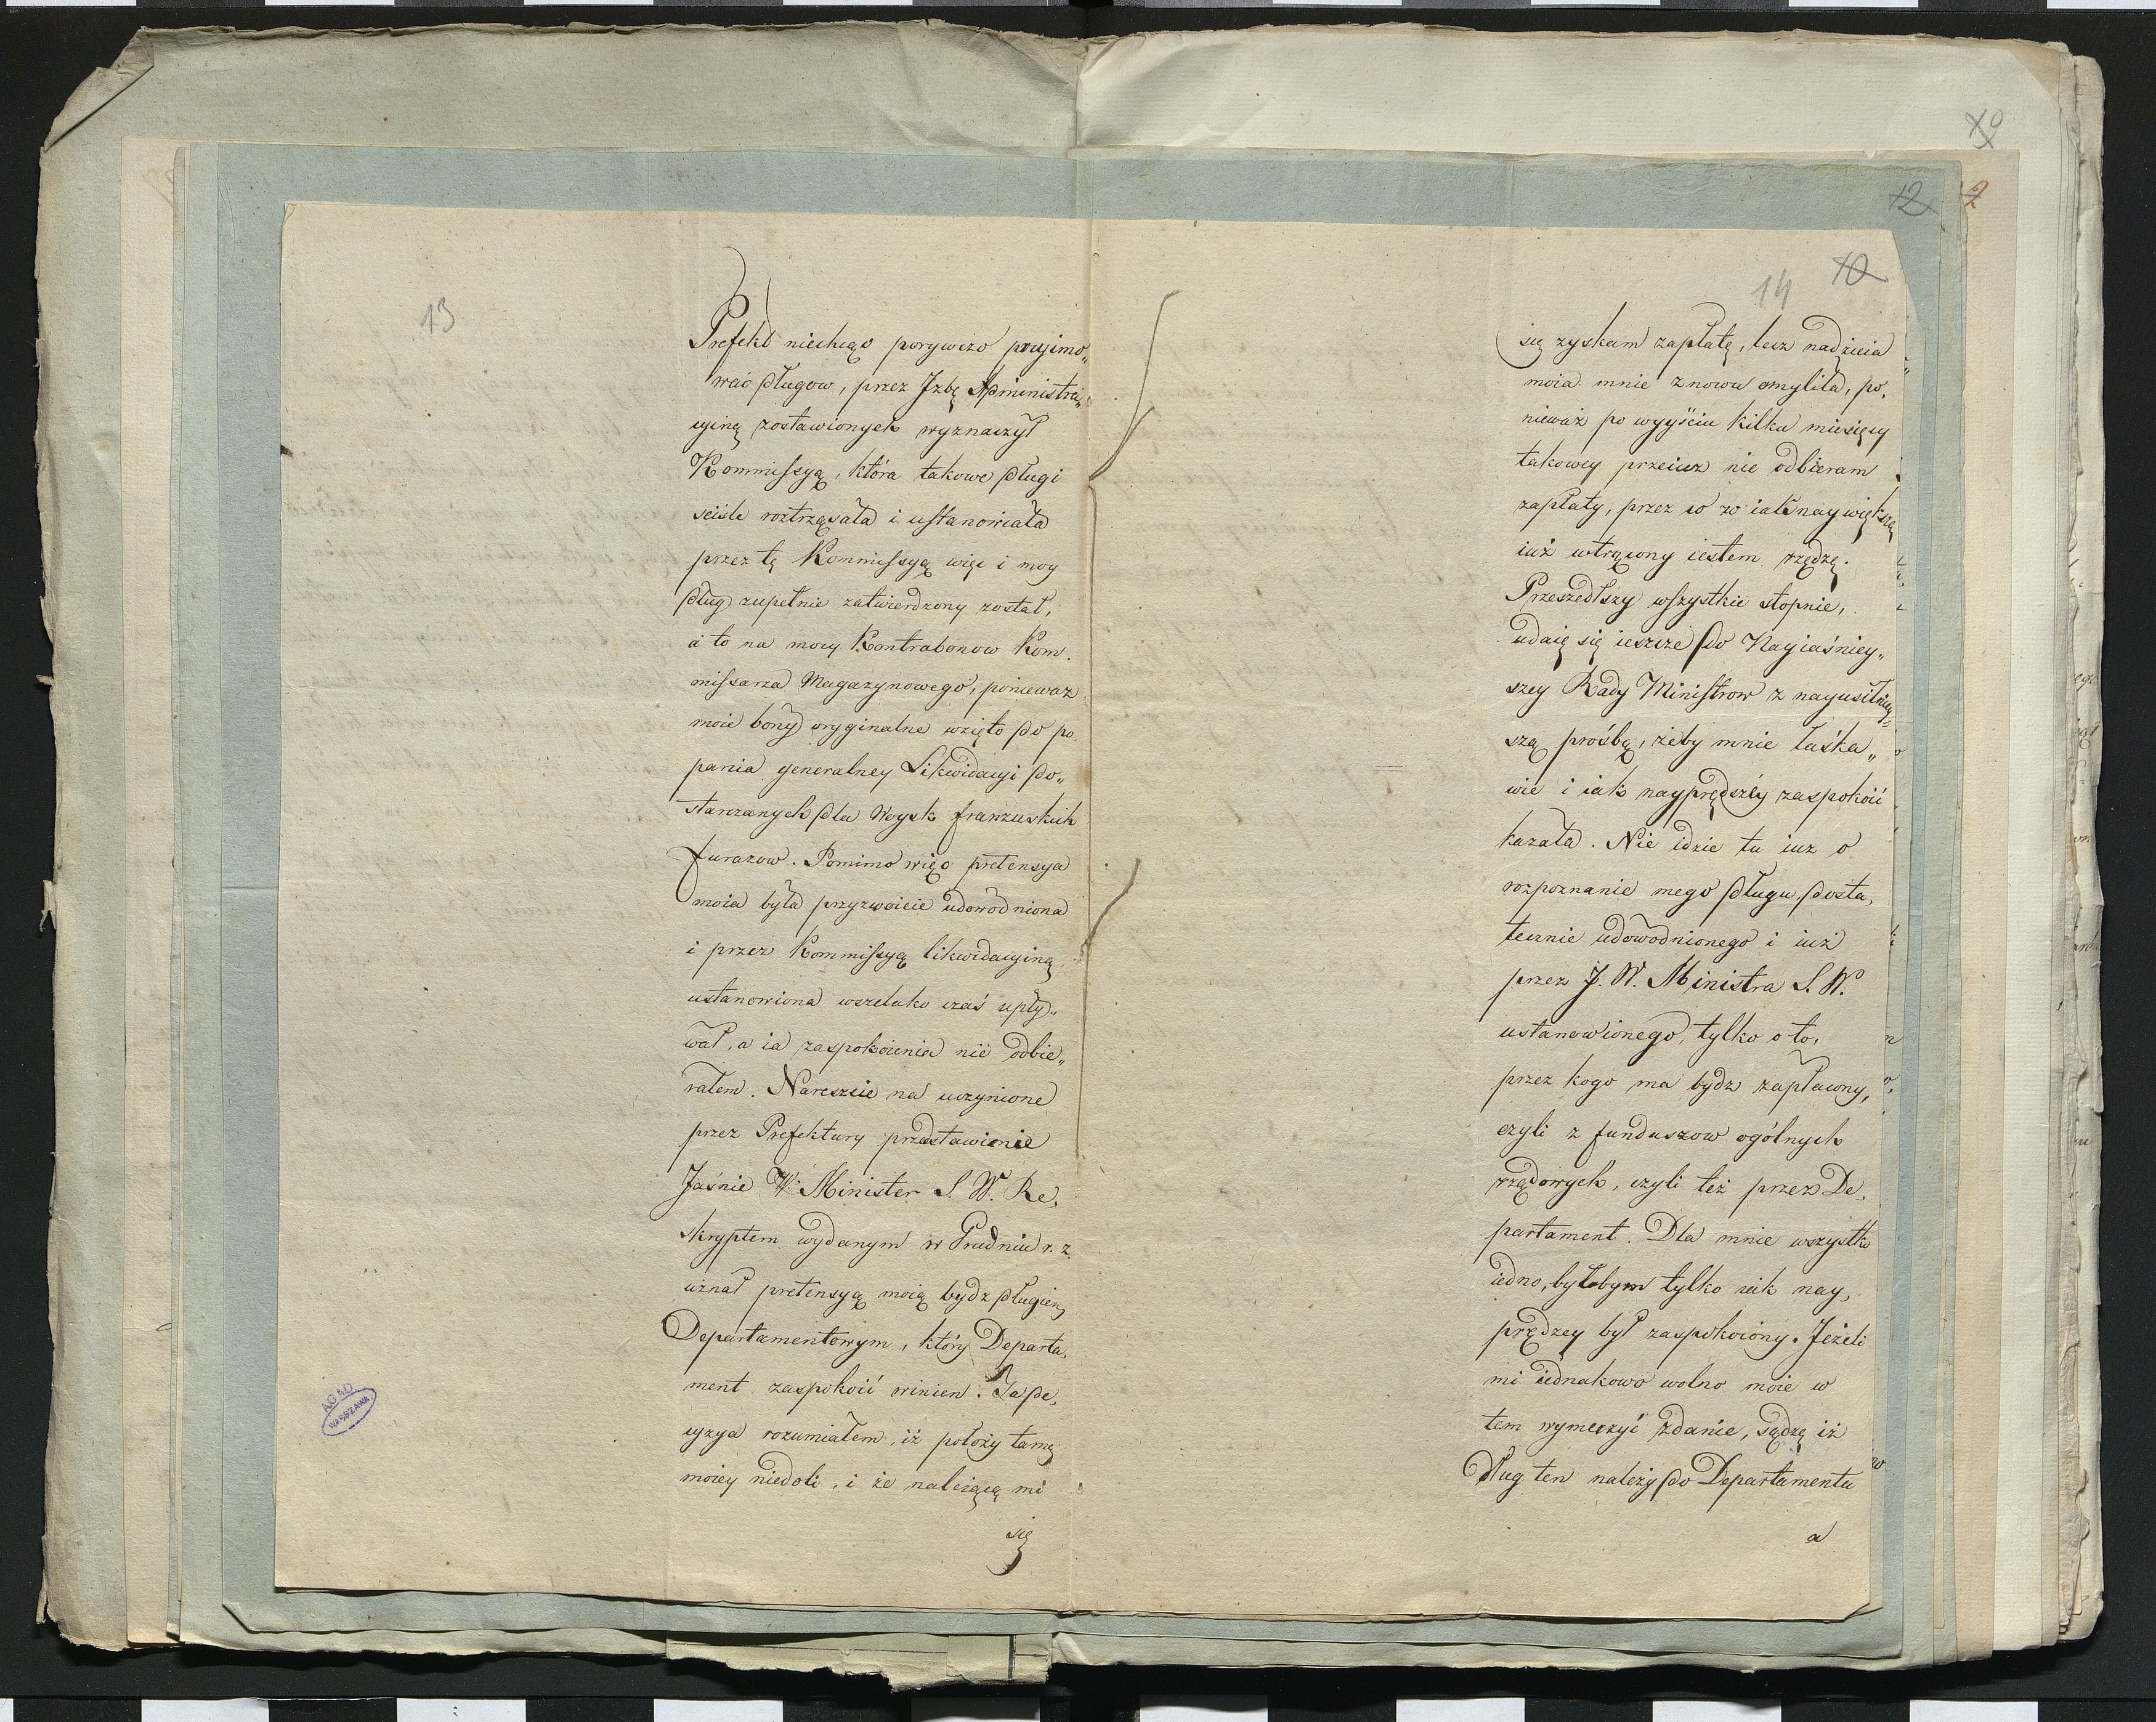 13
Prefekt niechcąc porywczo przyimo„
wać długow, przez Izbę Administra„
cyiną zostawionych wyznaczył
Kommissyą, która takowe długi
scisle roztrząsała i ustanowiała
przez tę Kommissyą więc i moy
dług zupełnie zatwierdzony został,
a to na mocy Kontrabonow Kom.
missarza Magazynowego, poniewaz
moie bony oryginalne wzięto do po„
pania generalney Likwidacyi do„
starczanych dla Woysk francuskich
furazow. Pomimo więc pretensya
moia była przyzwoicie udowodniona
i przez Kommissyą likwidacyiną
ustanowiona wszelako czas upły„
wał, a ia zaspokoienia nie odbie„
rałem. Nareszcie na uczynione
przez Prefektury przedstawienie
Jaśnie W. Minister S. W. Re,
skryptem wydanym w Grudniu r. z.
uznał pretensyą moią bydz długiem
Departamentowym, który Departa,
ment zaspokoić winien. Ta de,
cyzya rozumiałem, iż położy tamę
moiey niedoli, i że należącą mi
się
12
2
14
10
się zyskam zapłatę, lecz nadzieia
moia mnie znowu omyliła, po,
nieważ po wyyściu kilku miesięcy
takowey przeciez nie odbieram
zapłaty, przez co w iak naywiększą
iuż wtrącony iestem nędzę.
Przeszedłszy wszystkie stopnie,
udaię się ieszcze do Nayiaśniey„
szey Rady Ministrow z nayusilniey„
szą proźbą, żeby mnie łaska„
wie i iak nayprędzéy zaspokoić
kazała. Nie idzie tu iuz o
rozpoznanie mego długu dosta,
tecznie udowodnionego i iuż
przez J. W. Ministra S. W.
ustanowionego, tylko o to,
przez kogo ma bydz zapłacony,
czyli z funduszow ogólnych
rządowych, czyli też przez De,
partament. Dla mnie wszystko
iedno, byłobym tylko iak nay,
prędzey był zaspokoiony. Jeżeli
mi iednakowo wolno moie w
tem wymerzyć zdanie, sądzę iż
Dług ten należy do Departamentu
a
AGAD
WARSZAWA